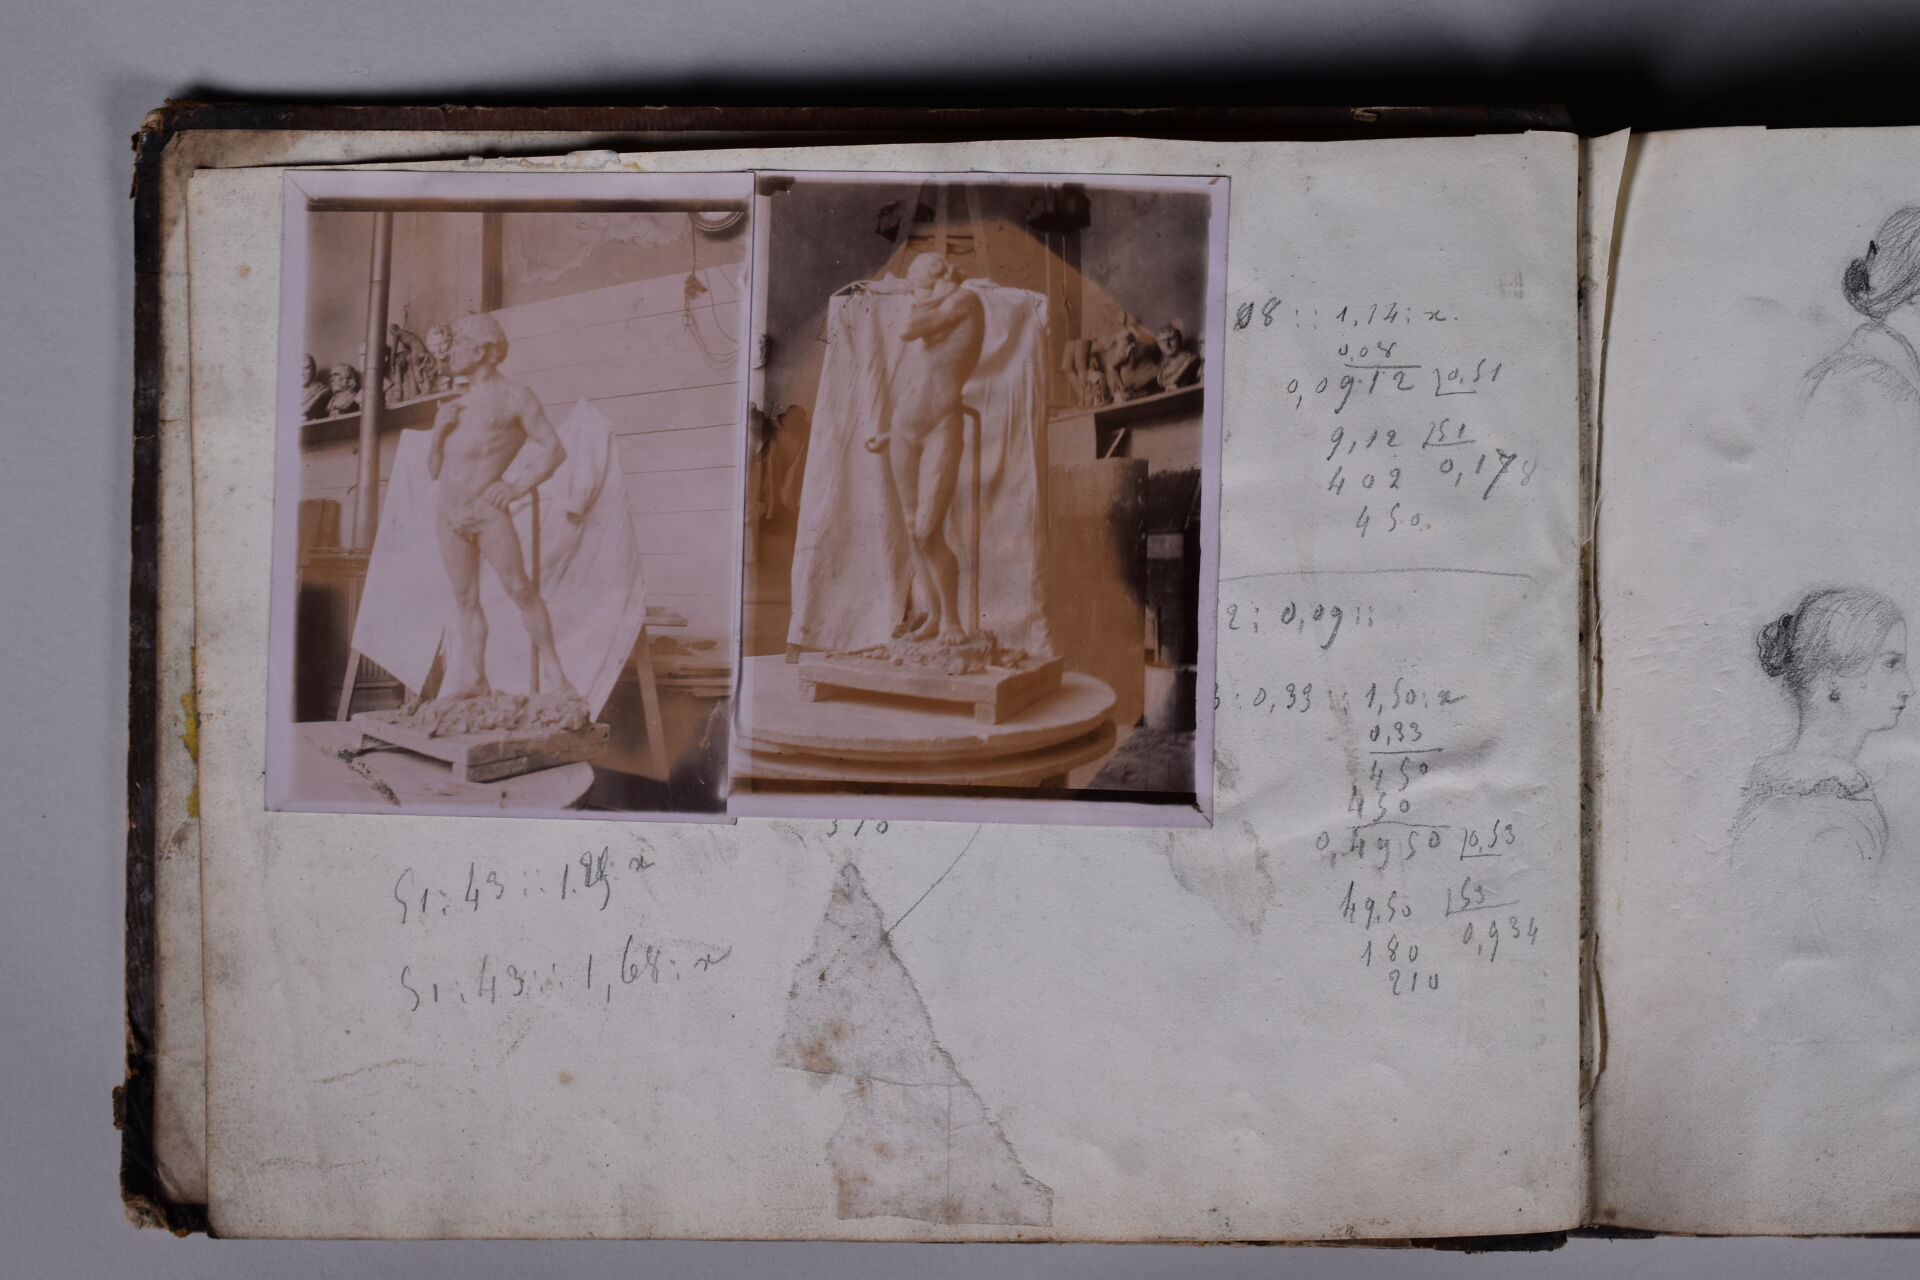 08 :: 1,14 : x.
0,08
0,0912 0,51
9,12 51
402 0,178
450
2 : 0,09 ::
3 : 0,33 :: 1,50 : x
0,33
450
450
0,4950 0,53
49,50 53
180 0,934
210
310
51 : 43 :: : x
51 : 43 :: 1,68 : x